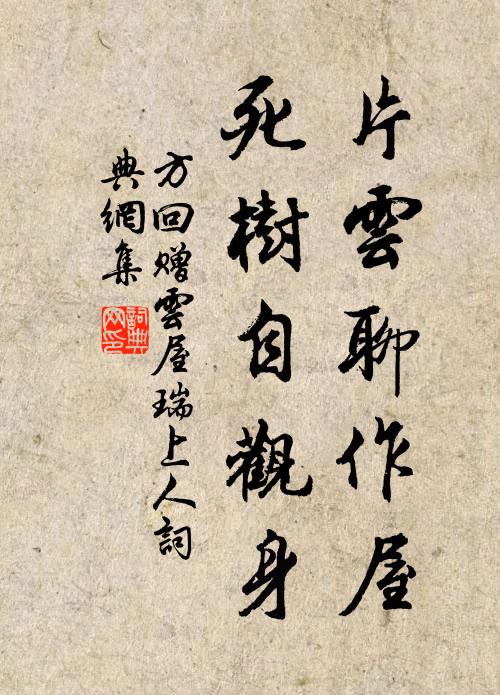 片雲聊作屋
死樹自觀身
方回贈雲屋瑞上人詞
典網集
詞典
网印